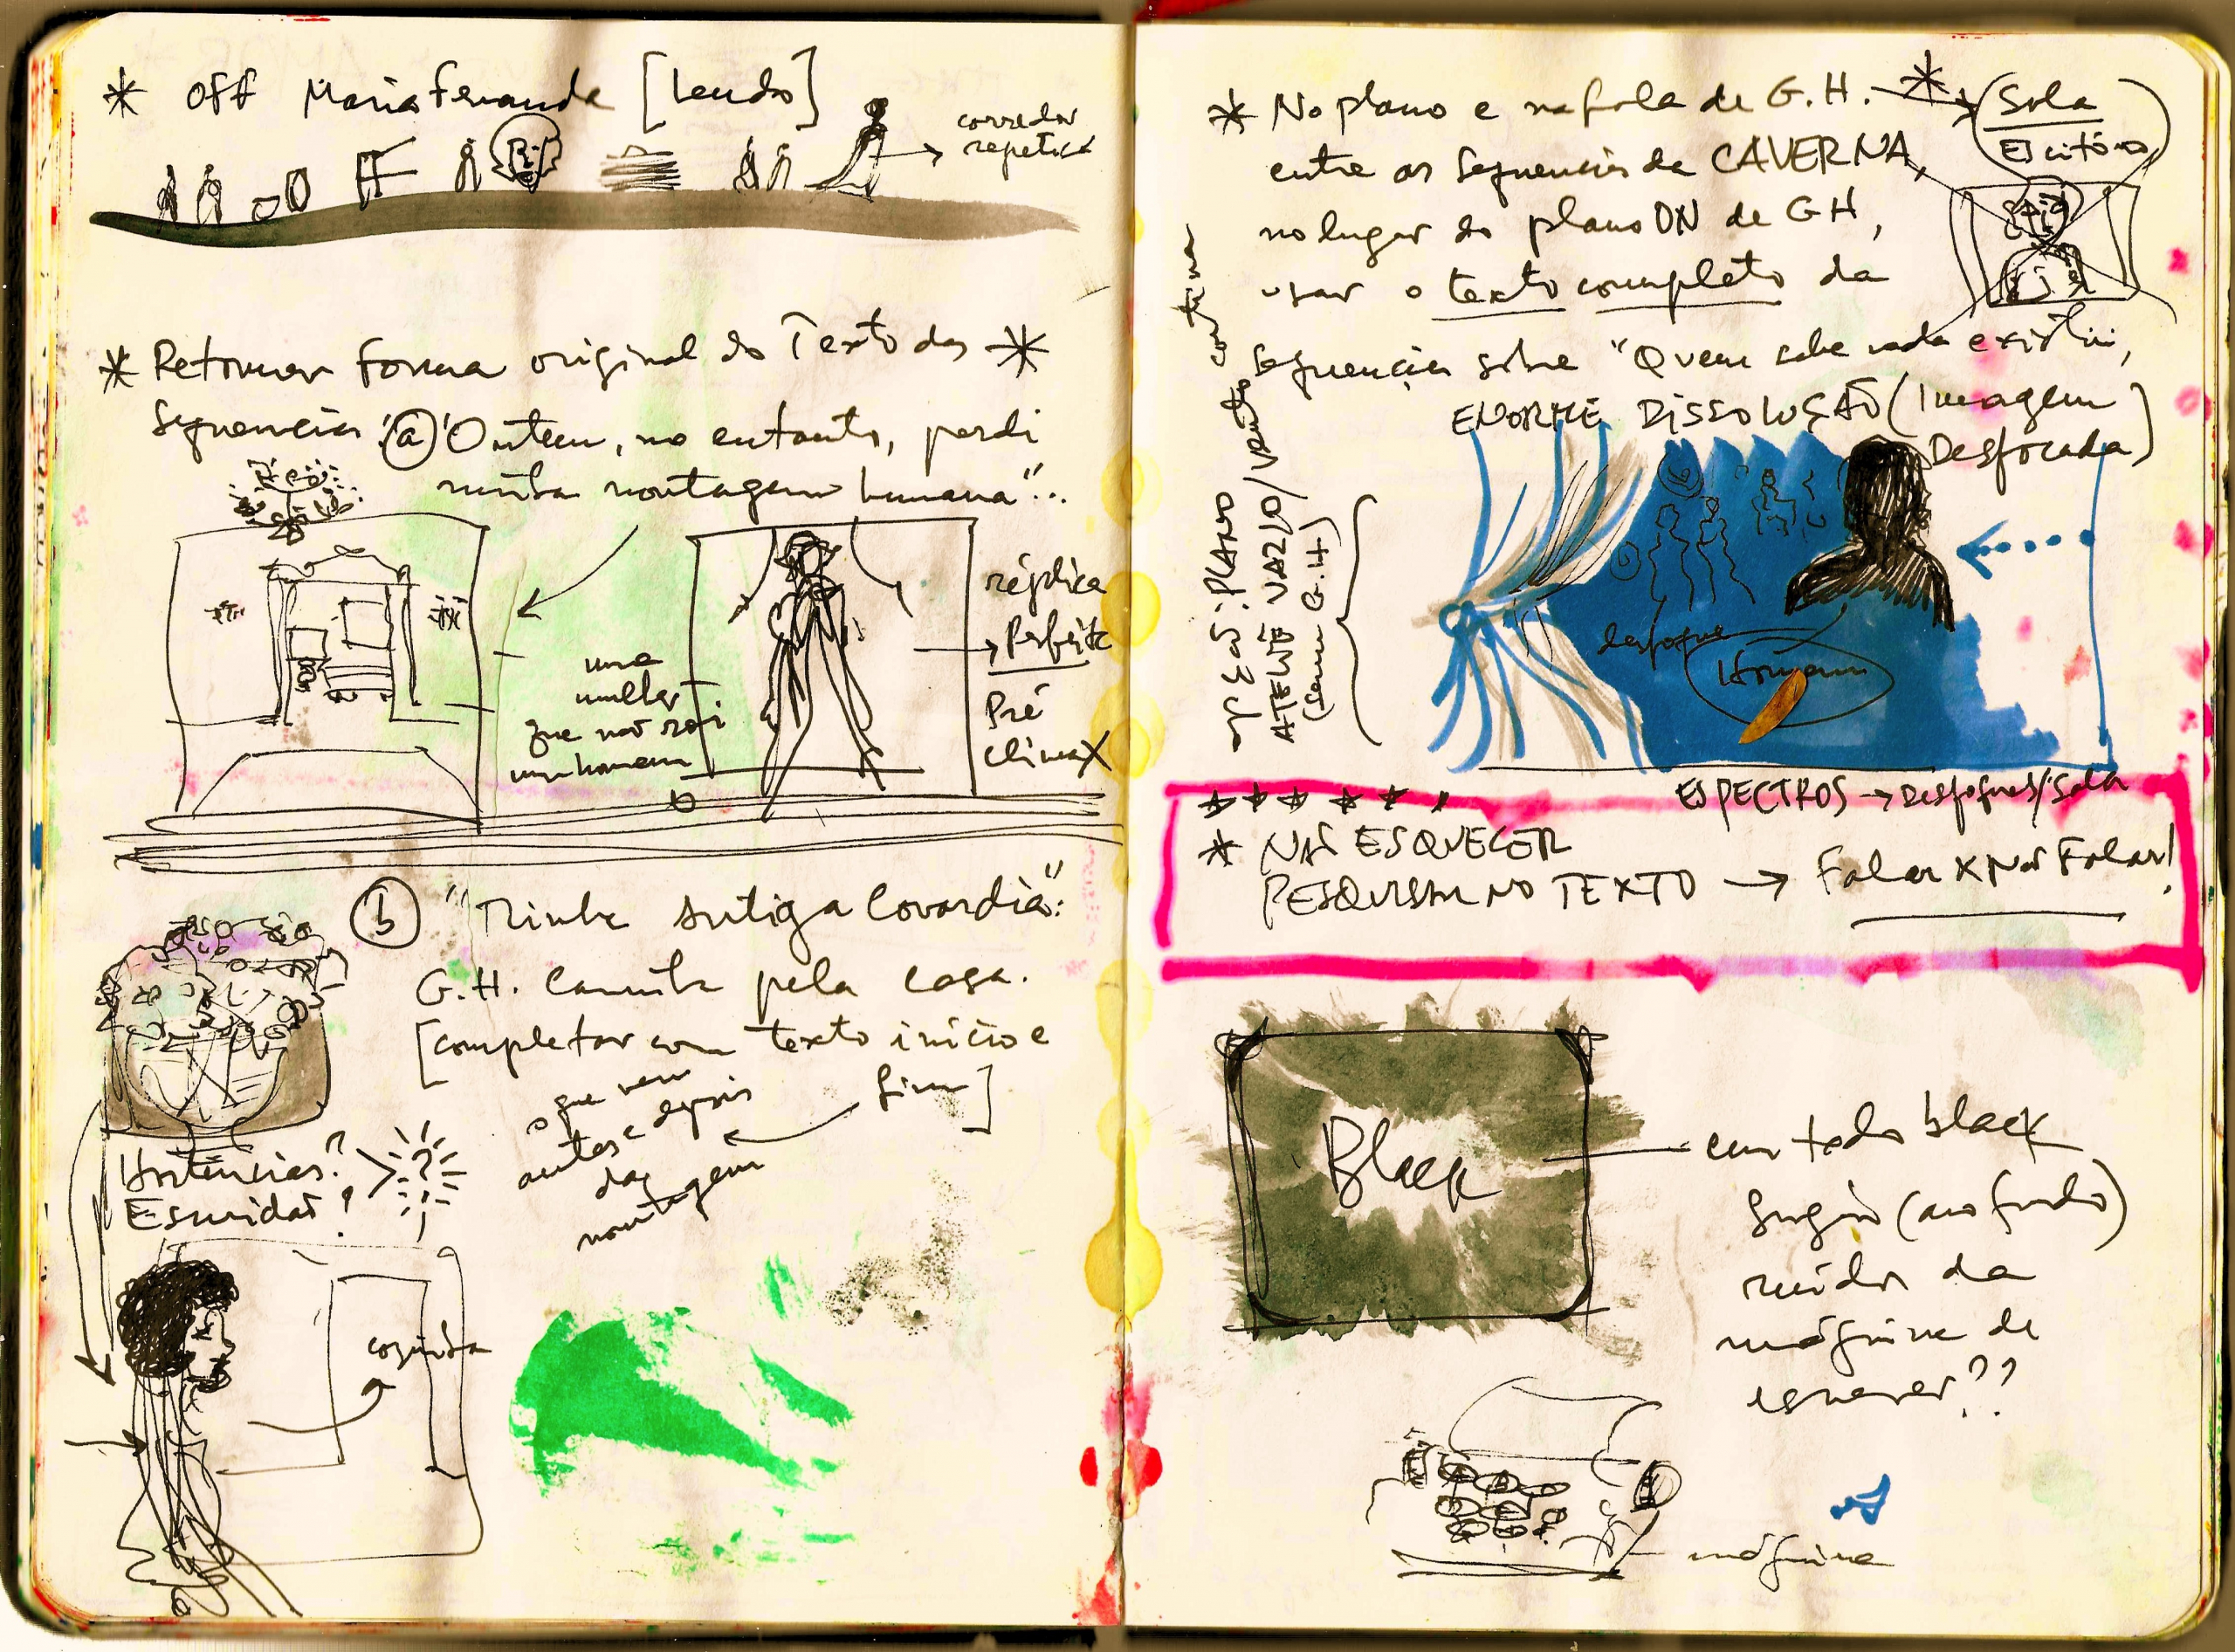 * Off Maria Fernanda [Lendo]
→ corredor
repetida
* Retomar forma original do Texto das *
Sequencias (a) "Ontem, no entanto, perdi
minha montagem humana"...
uma
mulher
que não
um homem
réplica
→ perfeita
Pré
climax
(b) "Minha antiga Covardia":
G.H. Caminha pela casa.
[completar com texto início e
fim]
o que vem
antes e depois
da
montagem
Hortências?
Escuridão!
?
cozinha
* No plano e na fala de G.H. *
Sala
Escritório
entre as Sequencias da CAVERNA,
no lugar do plano ON de GH,
usar o texto completo da
Sequencia sobre "Quem sabe nada existiu",
ENORME DISSOLUÇÃO (Imagem
Desfocada)
apenas: PLANO
ATELIÊ VAZIO/vento cortina
(sem G.H)
desfoque
Homem
ESPECTROS → Desfoques/Sala
* NÃO ESQUECER
PESQUISAR NO TEXTO → Falar X Não Falar!
Black
em todo black
surgir (ao fundo)
ruídos da
máquina de
escrever??
máquina